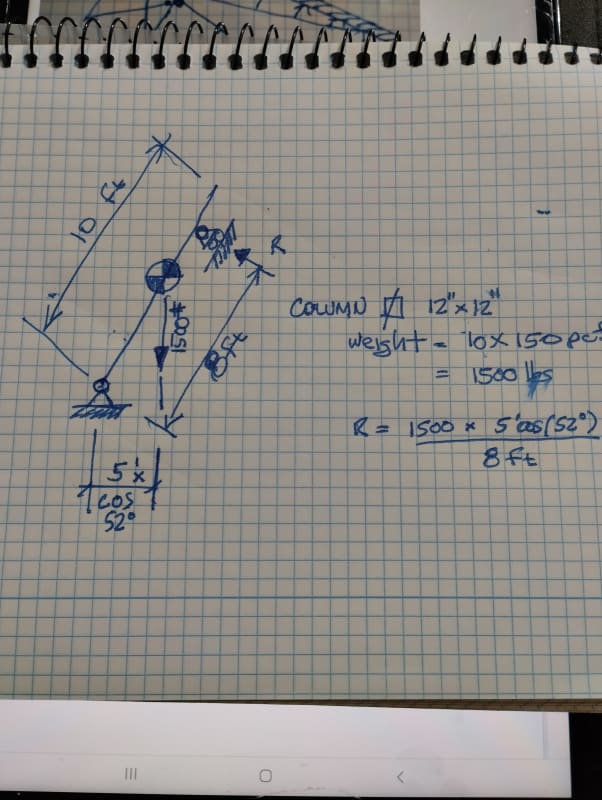 10 ft
R
1500#
8 ft
5' x
cos
52°
COLUMN 12" x 12"
weight = 10 x 150 pcf
= 1500 lbs
R = 1500 x 5'cos(52°)
8 ft